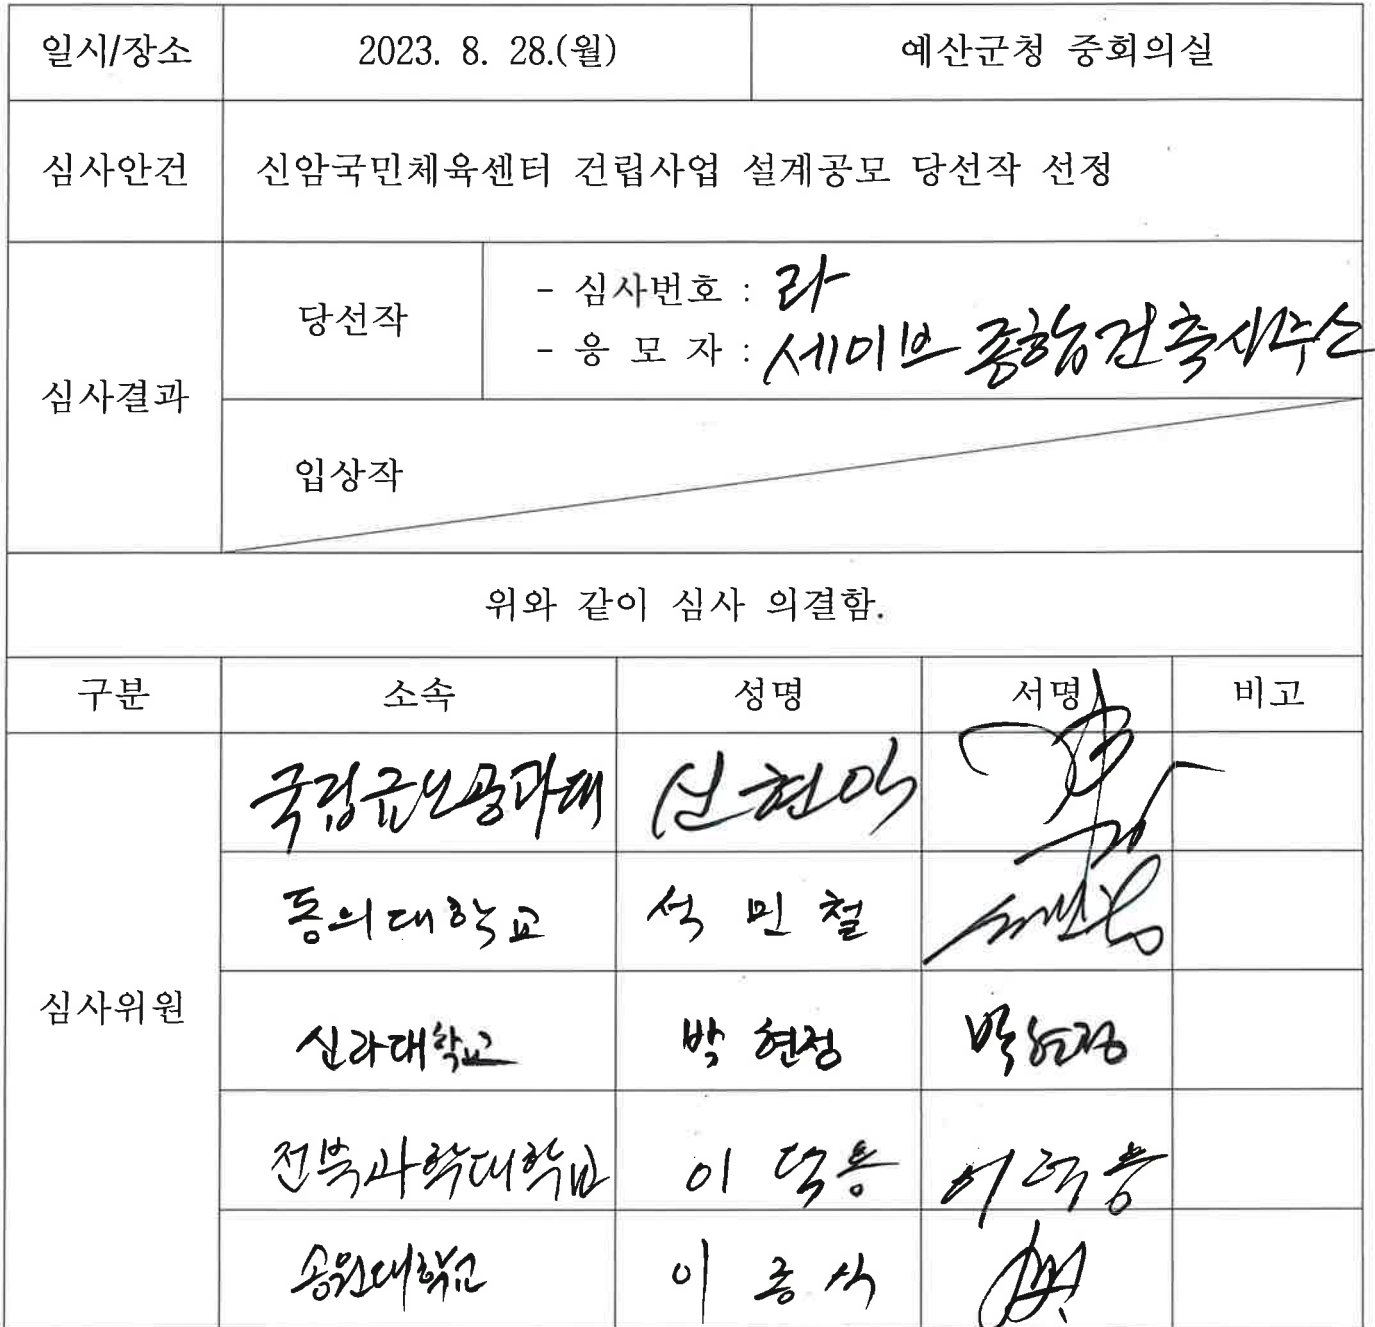 일시/장소 2023. 8. 28.(월) 예산군청 중회의실
심사안건 신암국민체육센터 건립사업 설계공모 당선작 선정
심사결과 당선작 - 심사번호 : 라
- 응 모 자 : 세이브 종합건축사
입상작
위와 같이 심사 의결함.
구분 소속 성명 서명 비고
심사위원
국립금오공과대 신현익
동의대학교 석민철
신라대학교 박현정 박현정
전북과학대학교 이덕용 이덕용
송원대학교 이종식